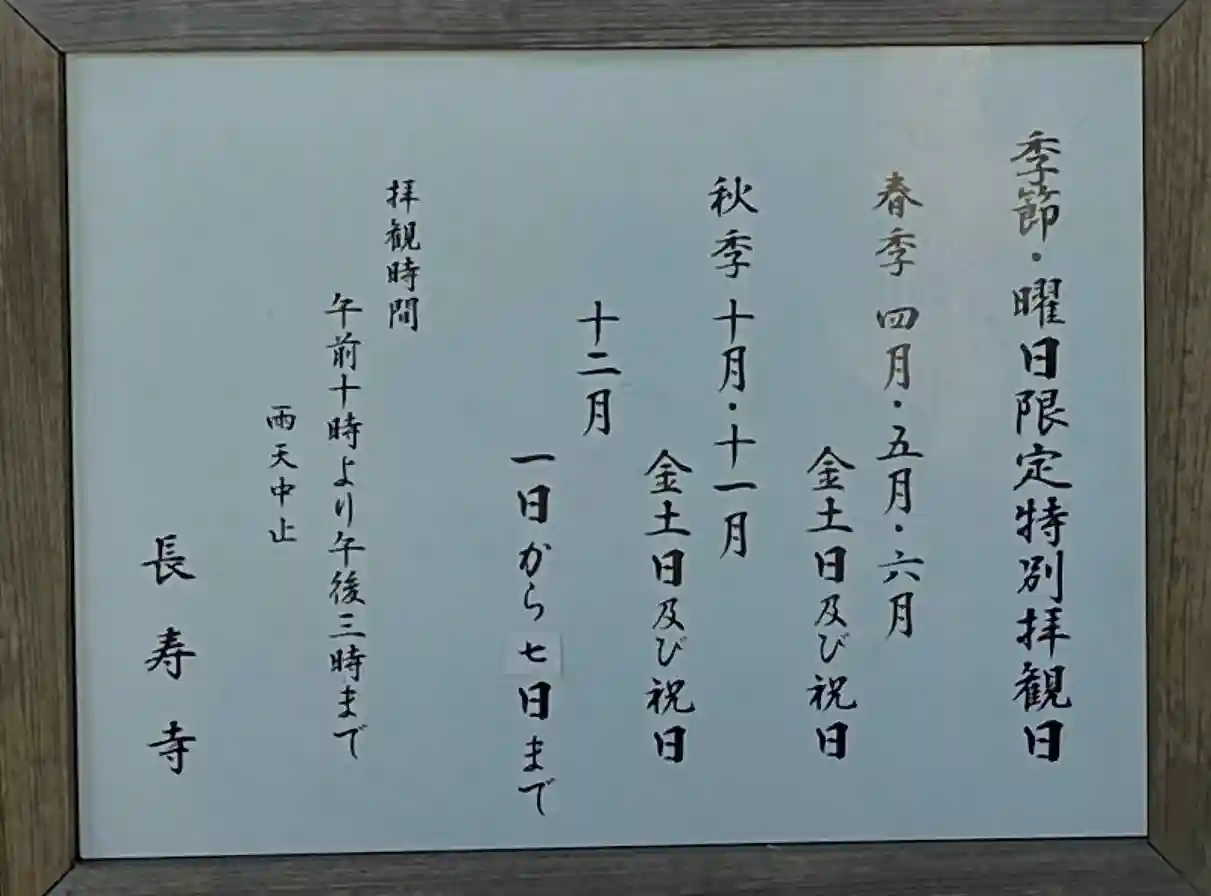 季節・曜日限定特別拝観日
春季 四月・五月・六月
金土日及び祝日
秋季 十月・十一月
金土日及び祝日
十二月
一日から七日まで
拝観時間
午前十時より午後三時まで
雨天中止
長寿寺